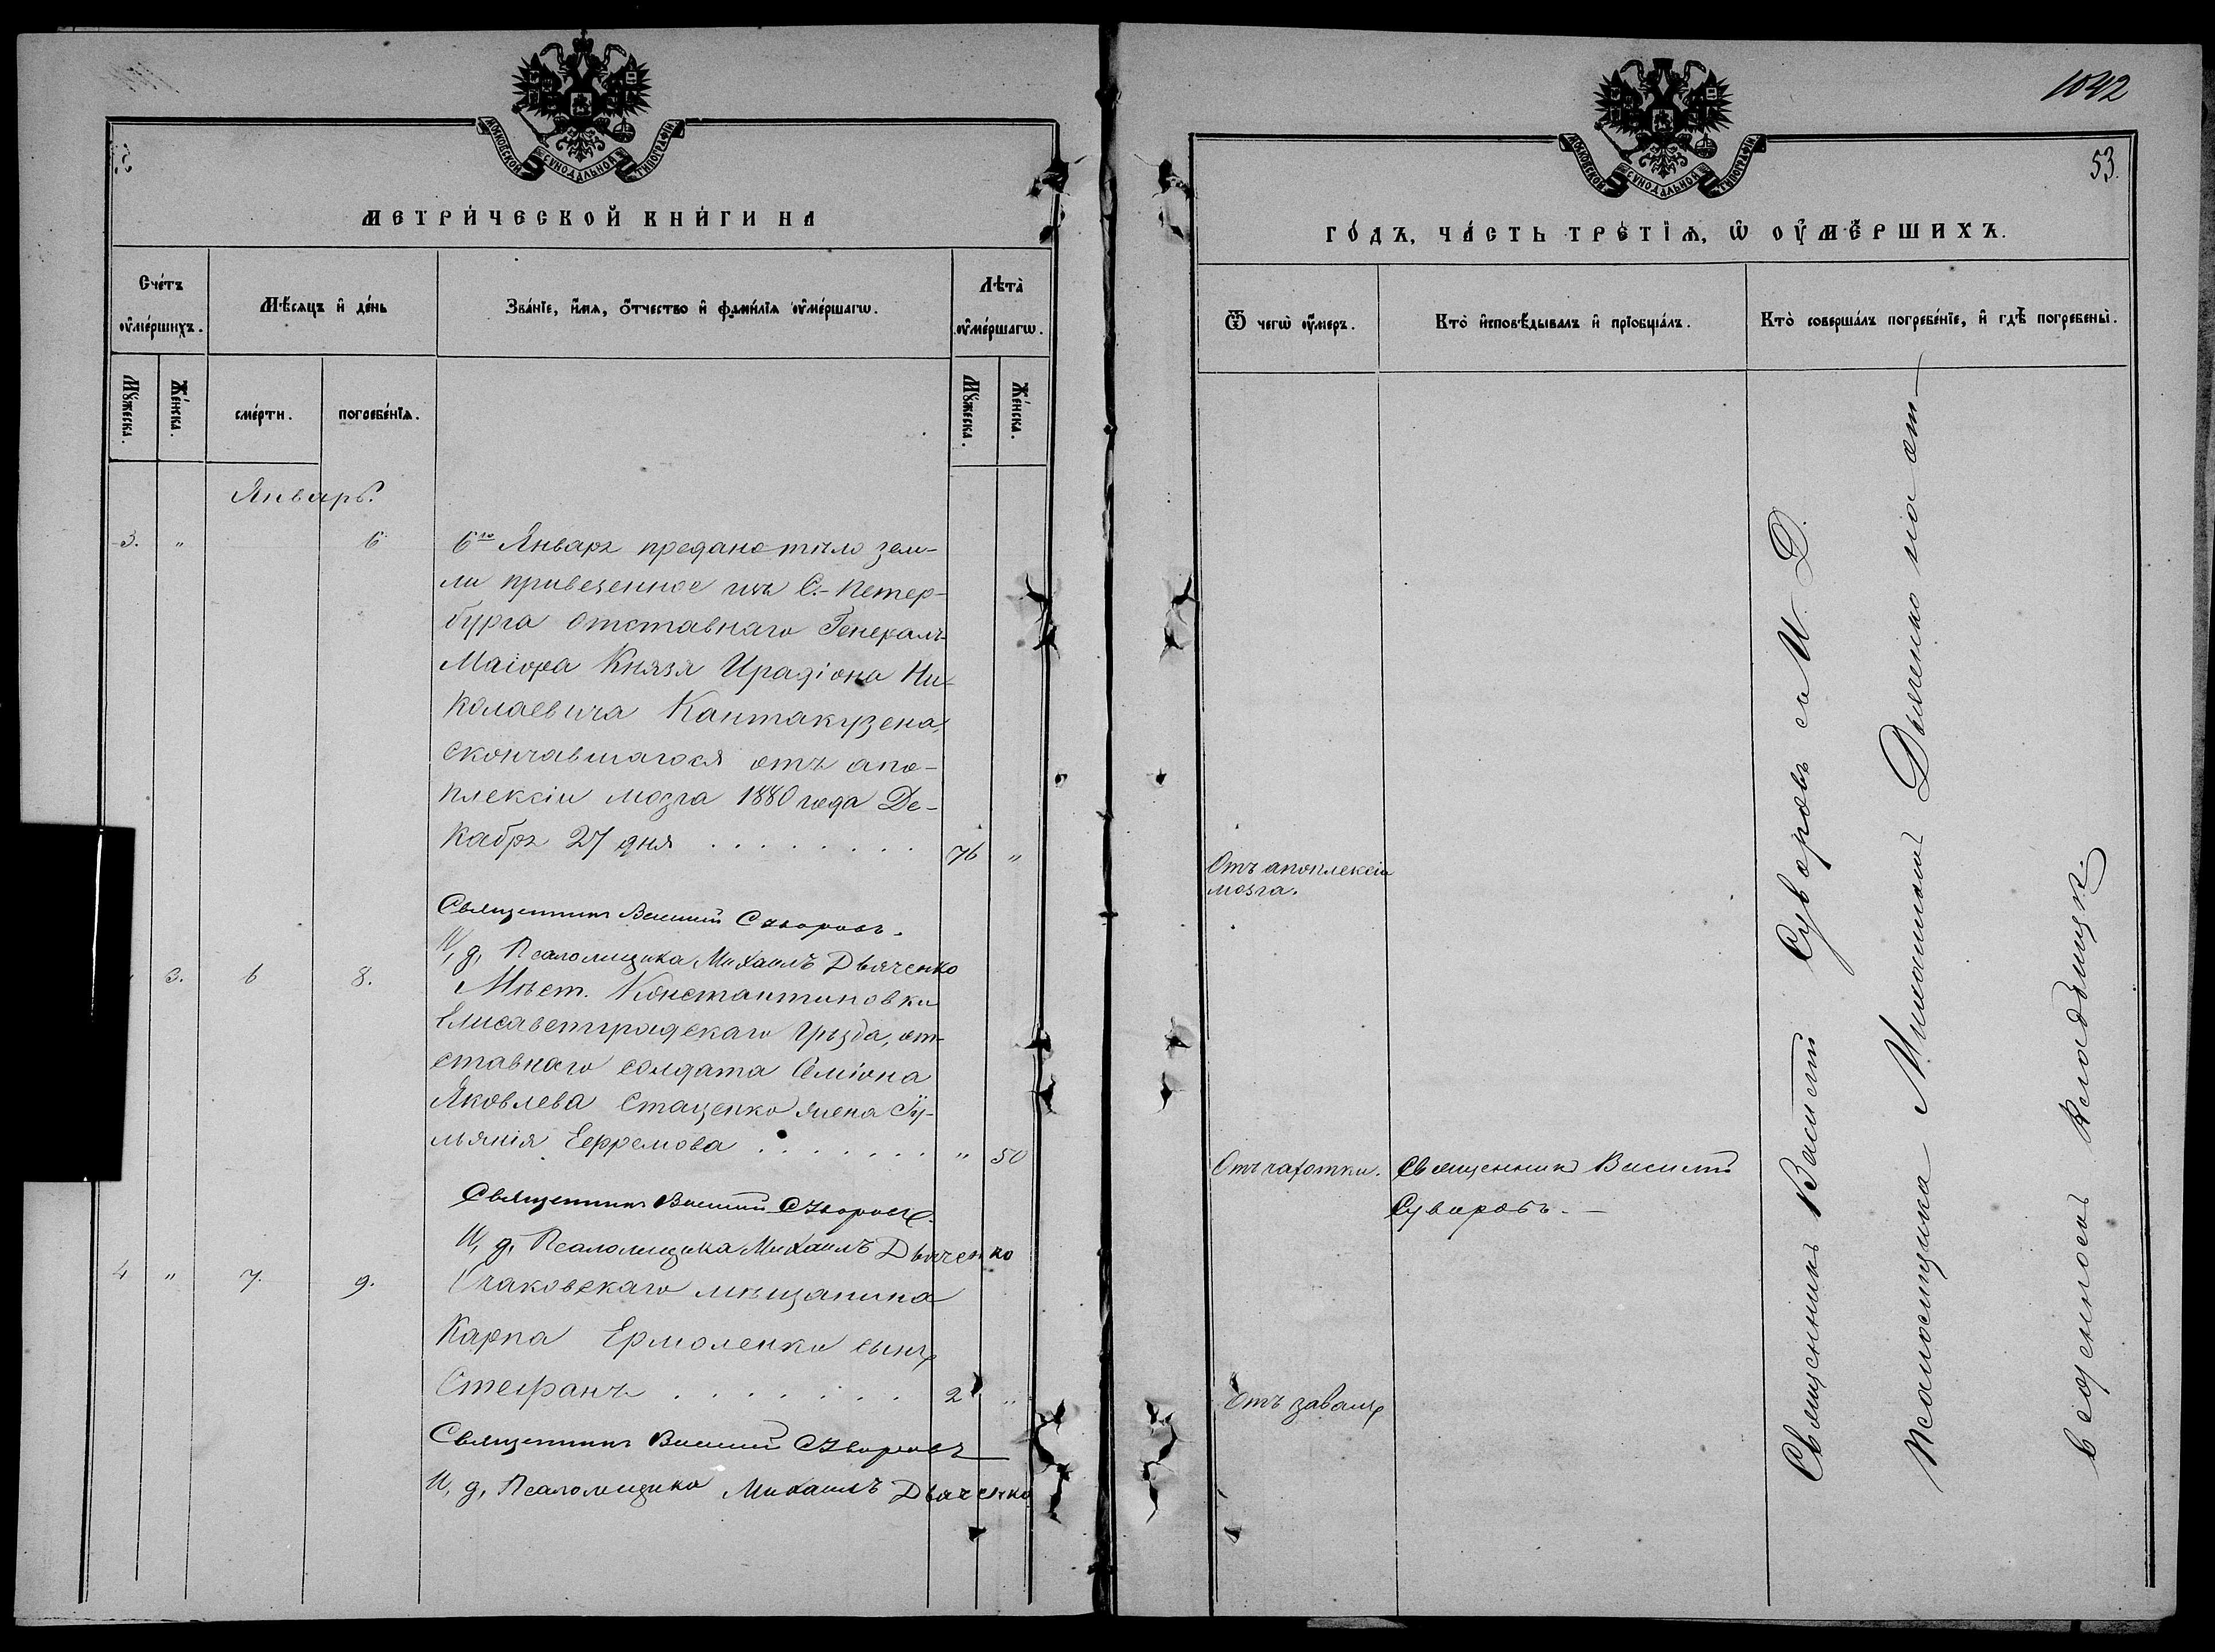 1042
53.
МОСКОВСКОЙ СѴНОДАЛЬНОЙ ТИПОГРАФІИ
МЕТРИ́ЧЕСКОЙ КНИ́ГИ НА
Сче́тъ ᲂумéршихъ.
Мѣ́сяцъ и҆ де́нь
Зва́нїе, и҆́мя, ѻ҆́тчество и҆ фами́лїя ᲂумéршагѡ.
Лѣта̀ ᲂумéршагѡ.
Мꙋжеска.
Же́нска.
сме́рти.
погребе́нїя.
Мꙋжеска.
Же́нска.
Январь.
3. " 6
6го Января предано тѣло зем-
ли привезенное изъ С.-Петер-
бурга отставнаго Генералъ-
Маіора Князя Иракліона Ни-
колаевича Кантакузена,
скончавшагося отъ апо-
плексіи мозга 1880 года Де-
кабря 27 дня . . . . . . . . 76 "
Священникъ Василий Суворовъ.
И, д, Псаломщика Михаилъ Дьяченко
3. 6 8.
Мѣст. Константиновки
Елисаветградскаго Уѣзда, от-
ставнаго солдата Семіона
Яковлева Стаценко жена Іу-
льянія Ефремова . . . . . . . " 50
Священникъ Василий Суворовъ.
И, д, Псаломщика Михаилъ Дьяченко
4 " 7. 9.
Очаковскаго мѣщанина
Карпа Ермоленка сынъ
Стефанъ . . . . . . . 2 "
Священникъ Василий Суворовъ
И, д, Псаломщика Михаилъ Дьяченко
МОСКОВСКОЙ СѴНОДАЛЬНОЙ ТИПОГРАФІИ
ГО́ДЪ, ЧА́СТЬ ТРЕ́ТЇѦ, Ѡ ОУМЕ́РШИХЪ.
Ѿ чегѡ̀ ᲂу҆́меръ.
Кто̀ и҆сповѣ́дывалъ и҆ прїобща́лъ.
Кто̀ соверша́лъ погребе́нїе, и҆ гдѣ̀ погребены̀.
Отъ апоплексіи
мозга.
Отъ чахотки. Священникъ Василій
Суворовъ. —
Отъ завалъ
Священникъ Василій Суворовъ съ И. Д.
Псаломщика Михаиломъ Дьяченко на от-
веденномъ кладбищѣ.